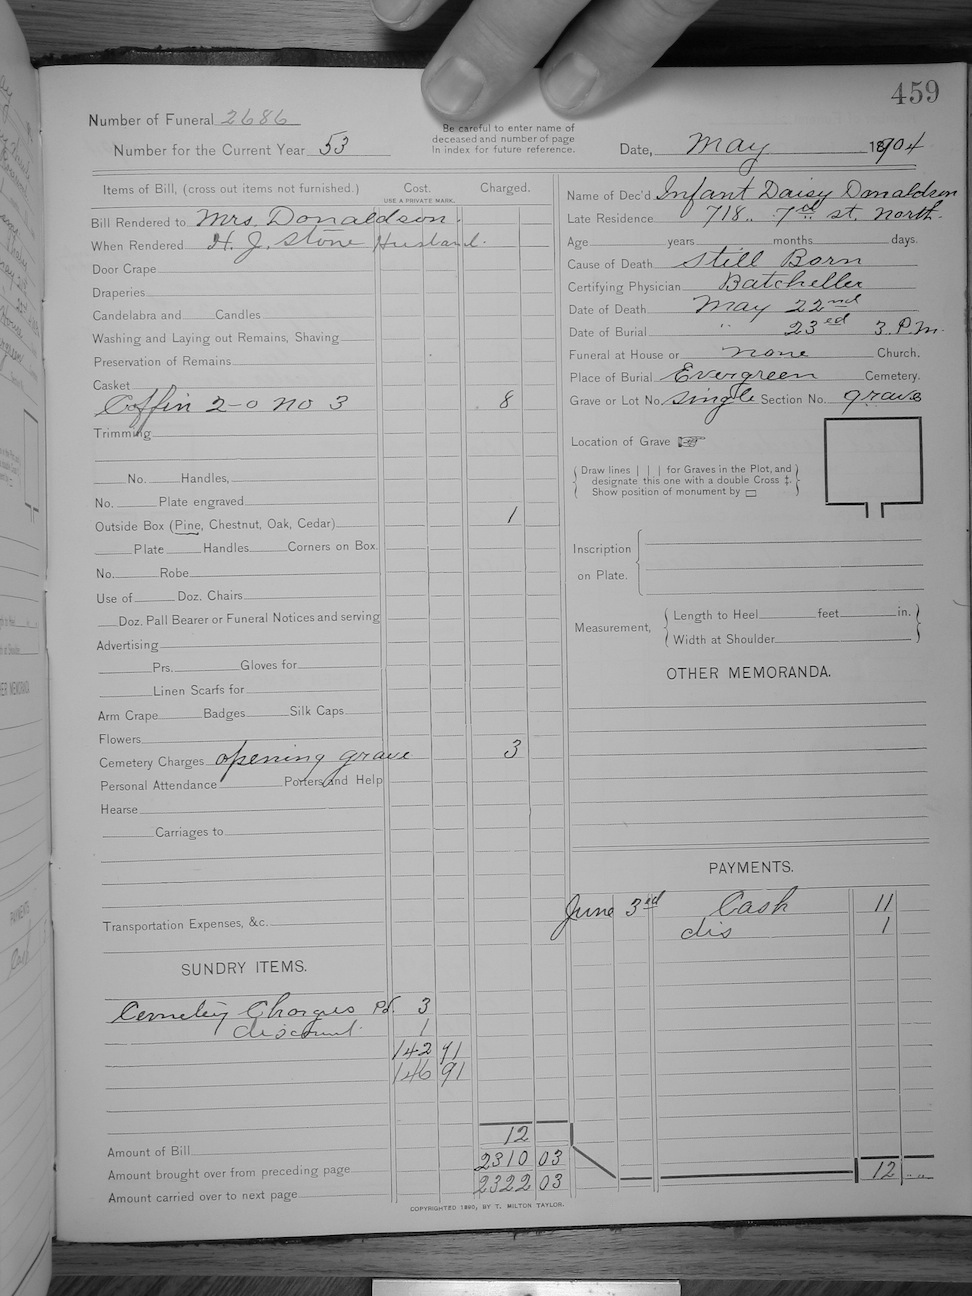 459
Number of Funeral 2686
Number for the Current Year 53
Be careful to enter name of
deceased and number of page
in index for future reference.
Date, May 1904
Items of Bill, (cross out items not furnished.) Cost. Charged.
USE A PRIVATE MARK.
Bill Rendered to Mrs. Donaldson.
When Rendered H. J. Stone Husband.
Door Crape
Draperies
Candelabra and Candles
Washing and Laying out Remains, Shaving
Preservation of Remains
Casket
Coffin 2-0 no 3 8
Trimming
No. Handles,
No. Plate engraved
Outside Box (Pine, Chestnut, Oak, Cedar) 1
Plate Handles Corners on Box.
No. Robe
Use of Doz. Chairs
Doz. Pall Bearer or Funeral Notices and serving
Advertising
Prs. Gloves for
Linen Scarfs for
Arm Crape Badges Silk Caps
Flowers
Cemetery Charges opening grave 3
Personal Attendance Porters and Help
Hearse
Carriages to
Transportation Expenses, &c.
SUNDRY ITEMS.
Cemetery Charges Pd. 3
discount 1
142 91
146 91
12
Amount of Bill
2310 03
Amount brought over from preceding page
2322 03
Amount carried over to next page
Name of Dec'd Infant Daisy Donaldson
Late Residence 718.. 7th st. North.
Age years months days.
Cause of Death Still Born
Certifying Physician Batcheller
Date of Death May 22nd
Date of Burial " 23ed 3. P.m.
Funeral at House or none Church.
Place of Burial Evergreen Cemetery.
Grave or Lot No. single Section No. grave
Location of Grave ☞
Draw lines | | | for Graves in the Plot, and
designate this one with a double Cross ‡.
Show position of monument by ▭
Inscription
on Plate.
Measurement, Length to Heel feet in.
Width at Shoulder
OTHER MEMORANDA.
PAYMENTS.
June 3ed Cash 11
dis 1
12
COPYRIGHTED 1890, BY T. MILTON TAYLOR.